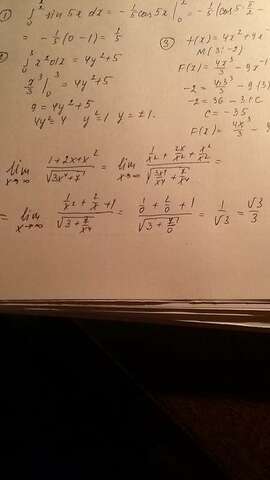 ① ∫₀ sin 5x dx = -1/5 cos5x |₀ = -1/5 (cos 5·
= -1/5 (0-1) = 1/5
∫₀³ x² dx = 4y²+5
x³/3 |₀³ = 4y²+5
9 = 4y²+5
4y² = 4 y² = 1 y = ±1.
③ f(x) = 4x²+9x⁻
M(3; -2)
F(x) = 4x³/3 - 9x⁻¹
-2 = 4·3³/3 - 9·(3)
-2 = 36 - 3 + C
C = -35
F(x) = 4x³/3 - 9
lim x→∞ (1+2x+x²)/√(3x⁴+x) = lim x→∞ (1/x² + 2x/x² + x²/x²)/√(3x⁴/x⁴ + x/x⁴) =
= lim x→∞ (1/x² + 2/x + 1)/√(3 + x/x⁴) = (1/0 + 2/0 + 1)/√(3 + x/0) = 1/√3 = √3/3